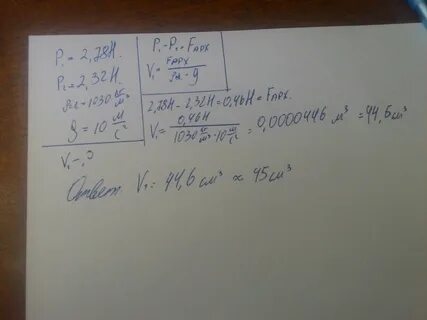 P₁ = 2,78Н.
P₂ = 2,32Н.
ρж = 1030 кг/м³
g = 10 м/с²
V₁ - ?
P₁ - P₂ = Fарх
V₁ = Fарх / ρж · g
2,78Н - 2,32Н = 0,46Н = Fарх.
V₁ = 0,46Н / 1030 кг/м³ · 10 м/с² = 0,0000446 м³ = 44,6 см³
Ответ: V₁ = 44,6 см³ ≈ 45 см³